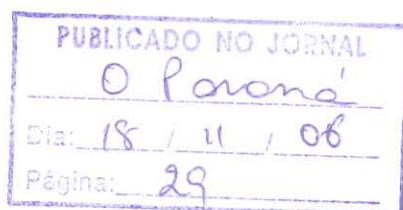 PUBLICADO NO JORNAL
O Paraná
Dia: 18 / 11 / 06
Página: 29